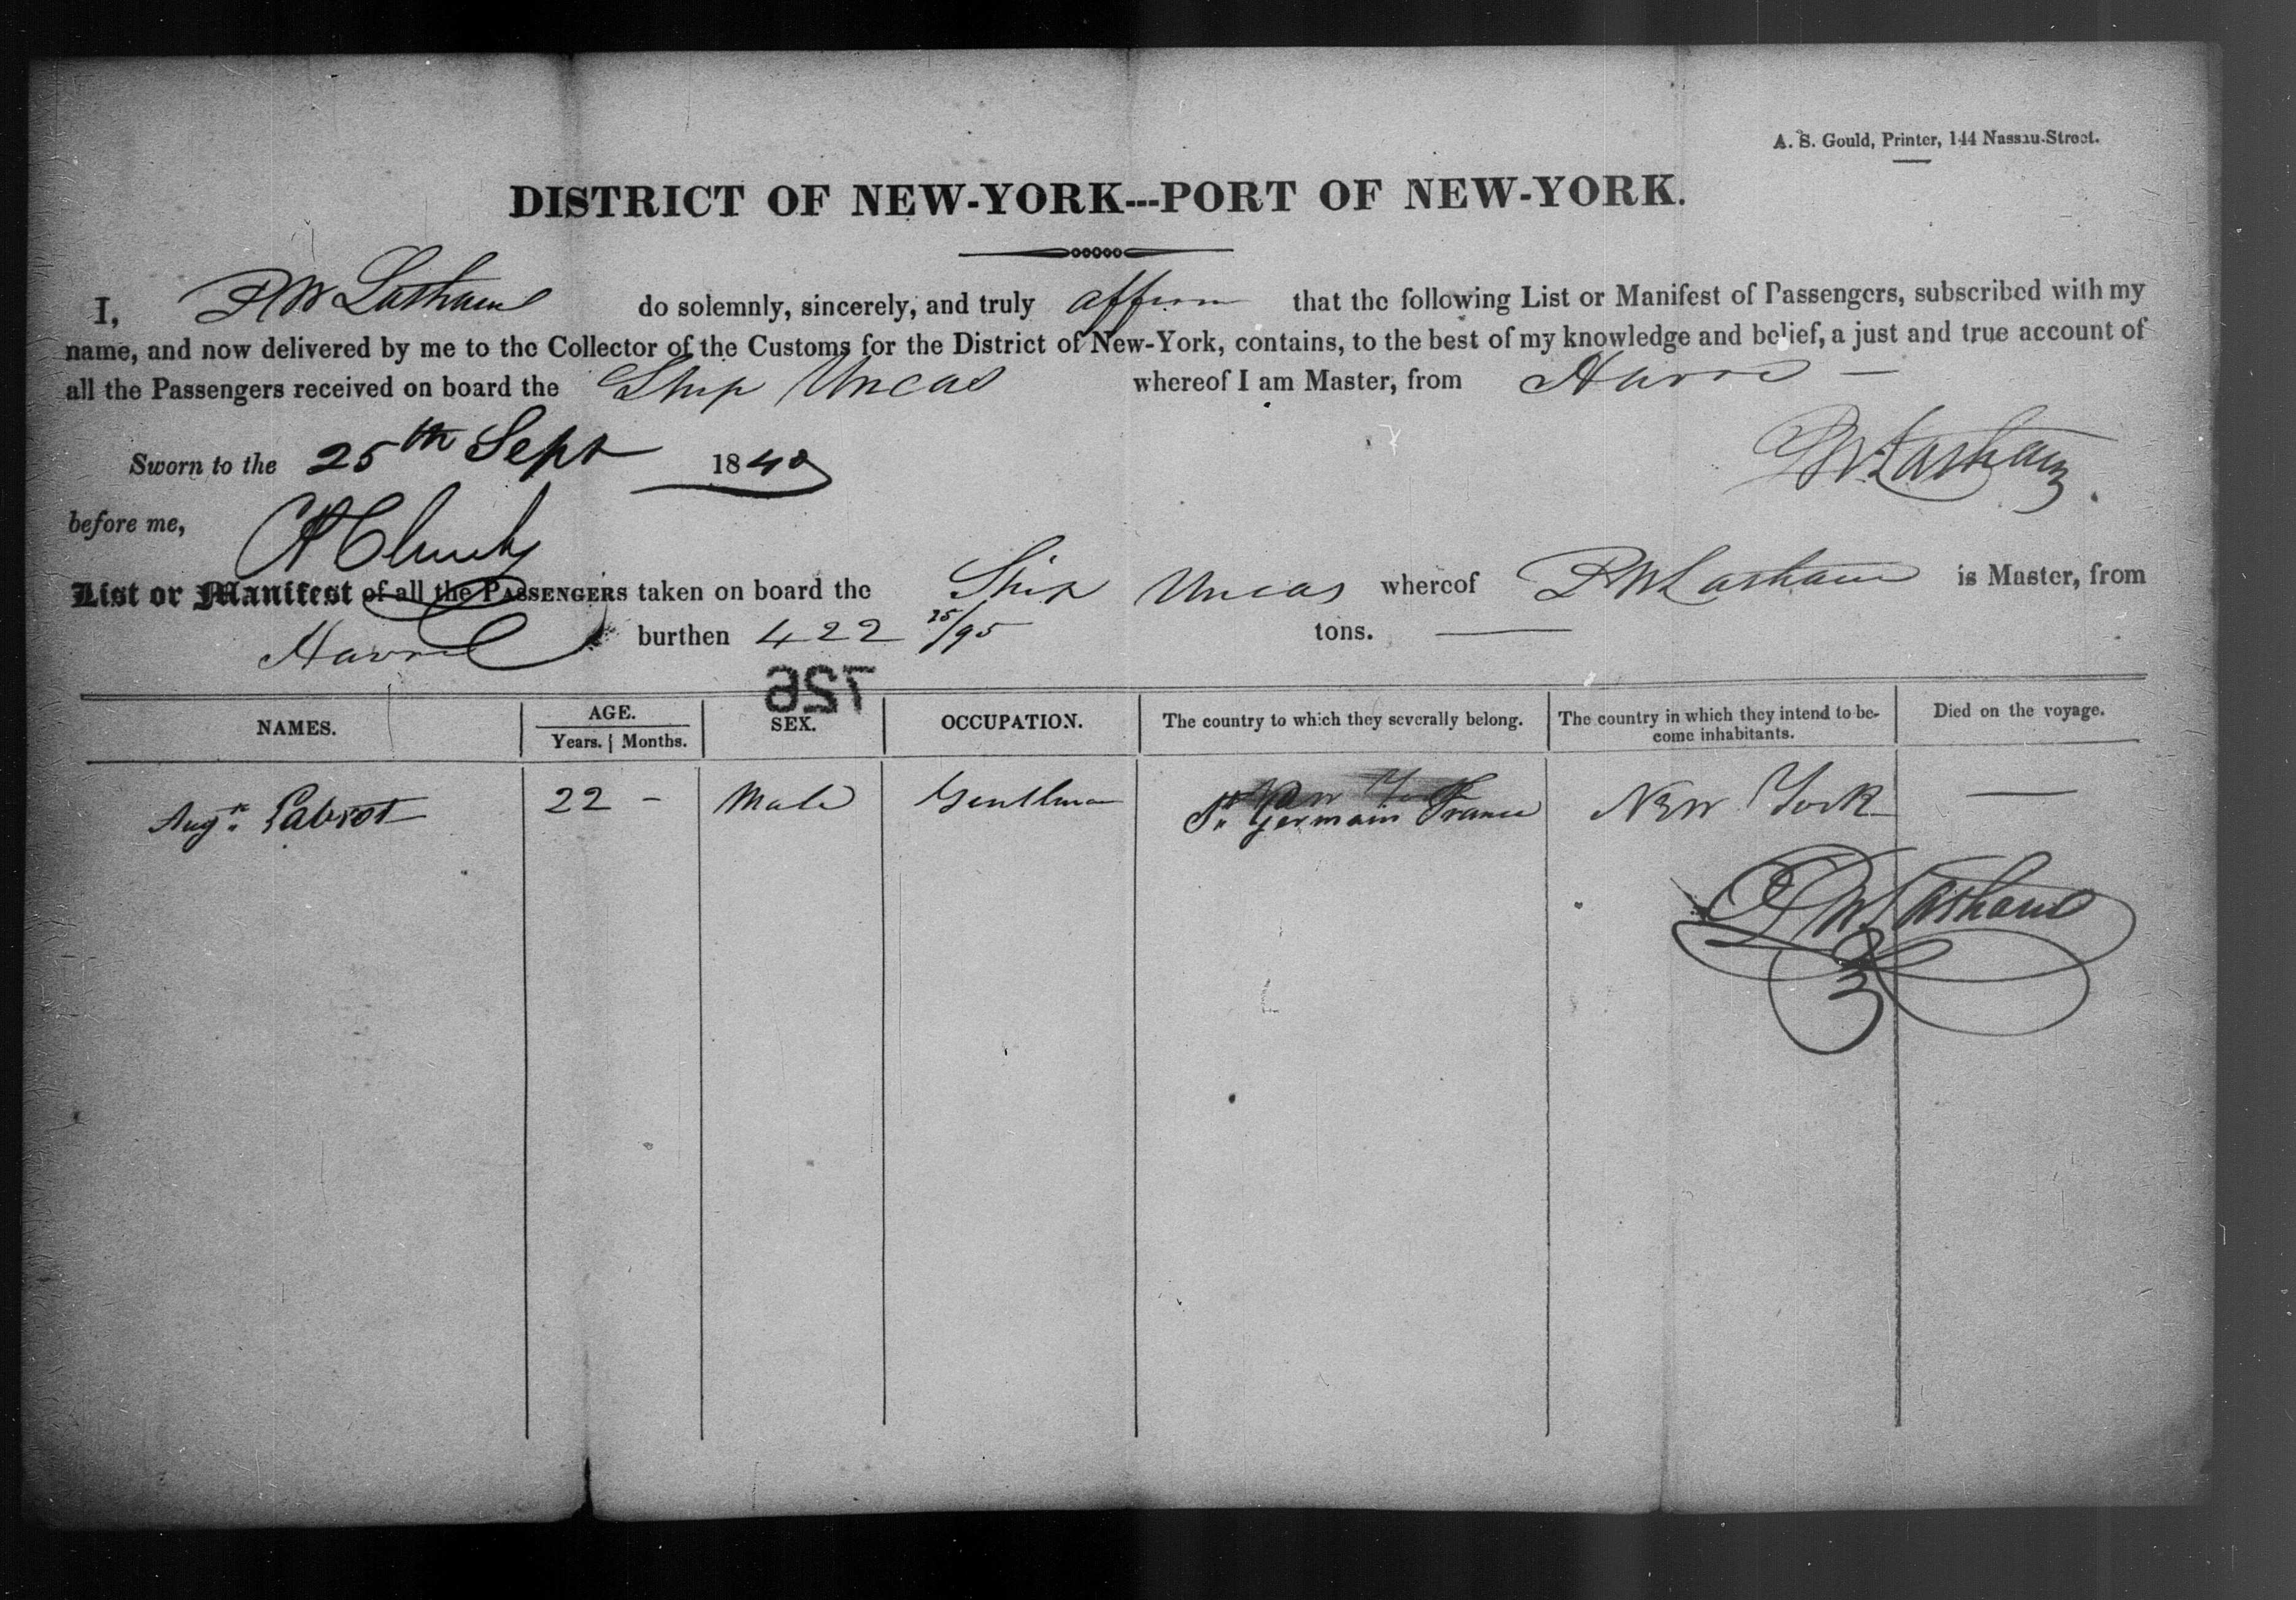 A. S. Gould, Printer, 144 Nassau-Street.
DISTRICT OF NEW-YORK---PORT OF NEW-YORK.
I, P W Latham do solemnly, sincerely, and truly affirm that the following List or Manifest of Passengers, subscribed with my
name, and now delivered by me to the Collector of the Customs for the District of New-York, contains, to the best of my knowledge and belief, a just and true account of
all the Passengers received on board the Ship Uncas whereof I am Master, from Havre —
Sworn to the 25th Sept 1840
P W Latham
before me,
List or Manifest of all the PASSENGERS taken on board the Ship Uncas whereof P W Latham is Master, from
Havre burthen 422 25/95 tons. —
726
NAMES. AGE. Years. Months. SEX. OCCUPATION. The country to which they severally belong. The country in which they intend to be- come inhabitants. Died on the voyage.
Labrot 22 - Male Gentleman St Germain France New York —
P W Latham